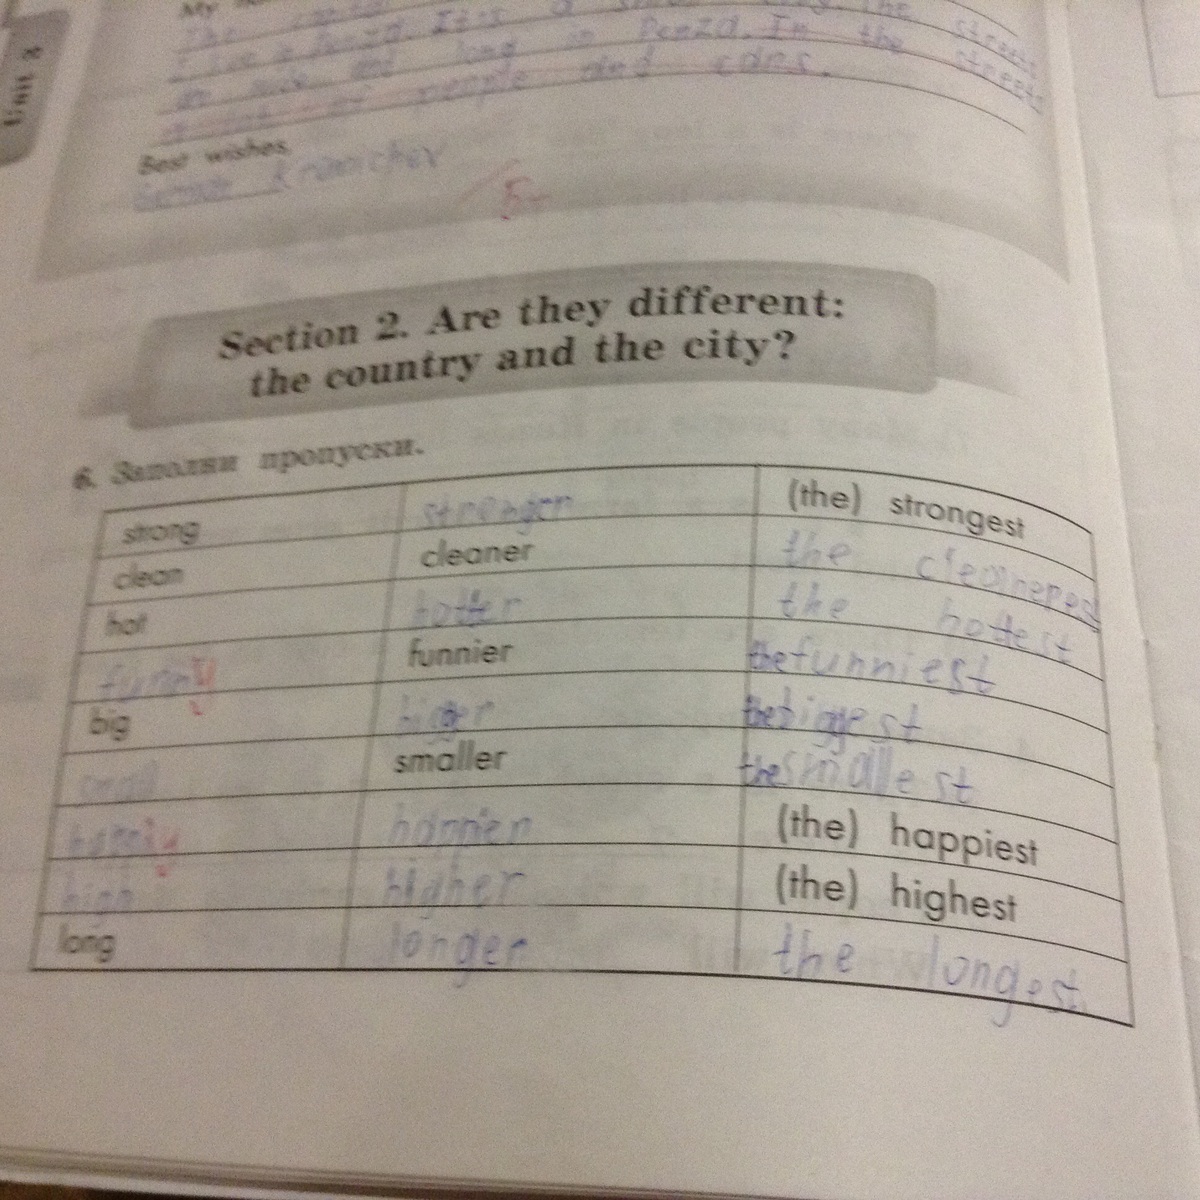 Unit 3
My
The
I live Penza. It is a The streets
and long in Penza. In the streets
of people and cars.
Best wishes,
5-
Section 2. Are they different:
the country and the city?
6. Заполни пропуски.
strong stronger (the) strongest
clean cleaner the cleanerest
hot hotter the hottest
funny funnier the funniest
big biger the biggest
small smaller the smallest
happy happier (the) happiest
high higher (the) highest
long longer the longest